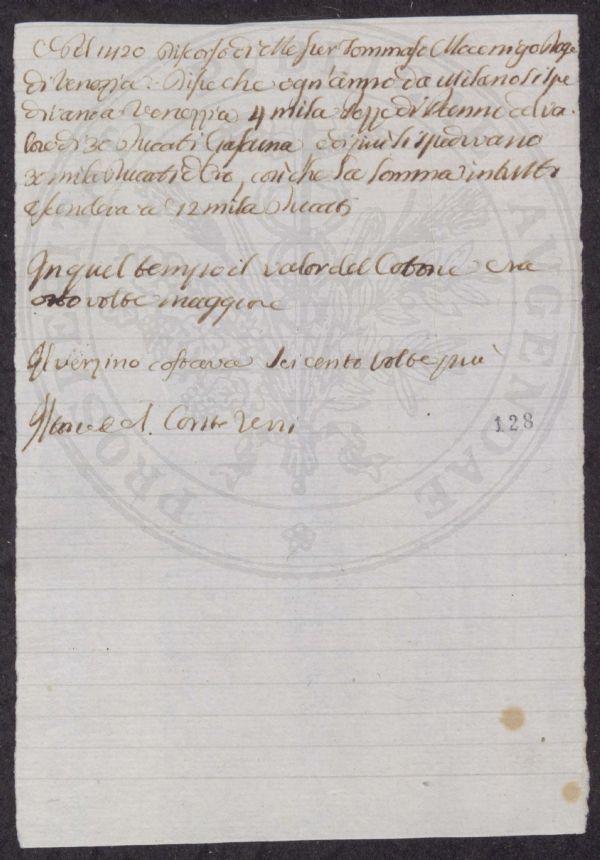 Del 1420 Discorso di Messer Tommaso Mocenigo Doge
di Venezia : Disse che ogni anno da Milano si spe
divano a Venezia 4 mila pezze di panni del va-
lore di 30 Ducati e di più si spedivano
Ducati d'Oro, così che la somma in tutto
ascendeva a 12 mila Ducati
In quel tempo il valor del Cotone era
otto volte maggiore
Il verzino costava sei cento volte più
Conte Verri
128
PROSPERITATI AUGENDAE